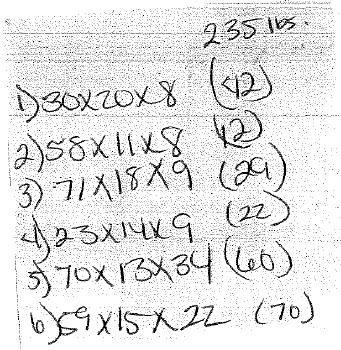 235 lbs.
1) 30x20x8 (42)
2) 58x11x8 (12)
3) 71x18x9 (29)
4) 23x14x9 (22)
5) 70x13x34 (60)
6) 59x15x22 (70)